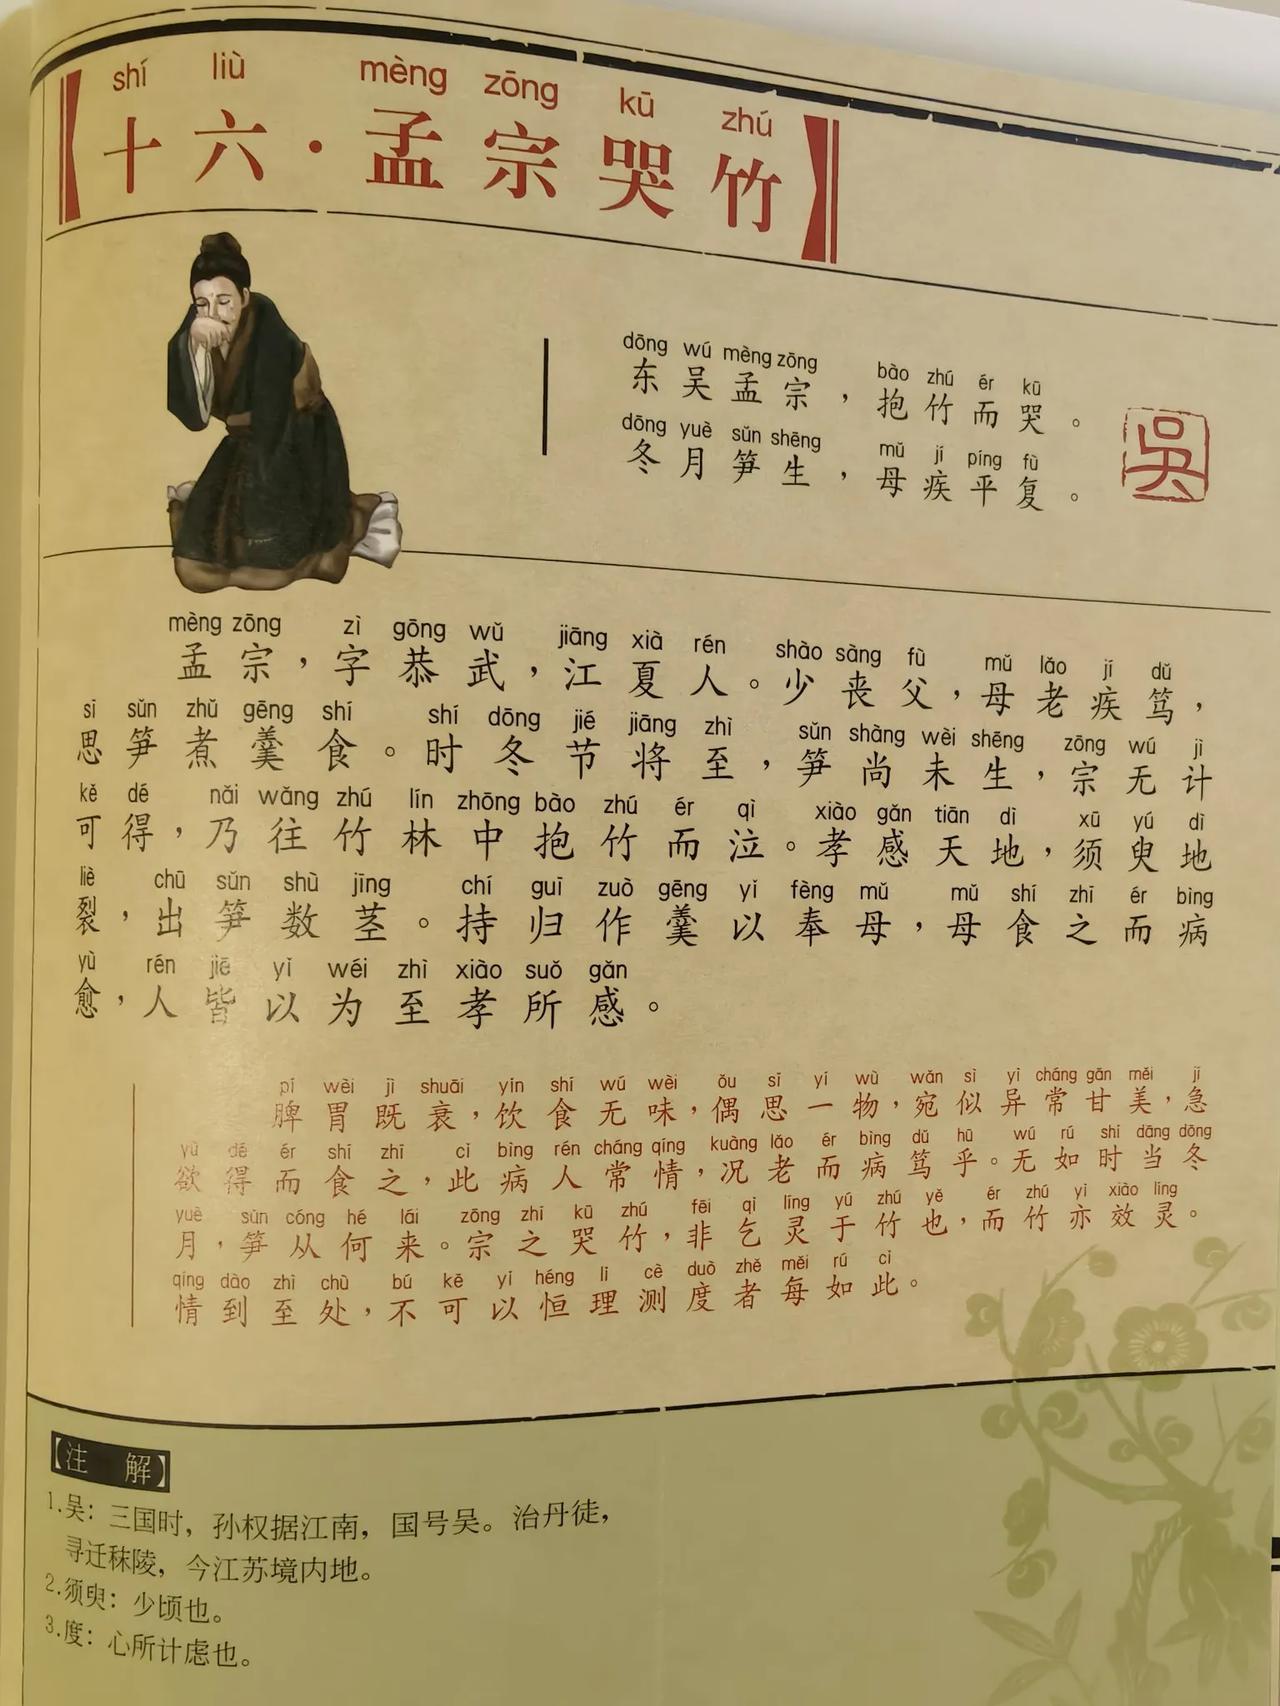 shí liù mèng zōng kū zhú
【十六·孟宗哭竹】
dōng wú mèng zōng bào zhú ér kū
东吴孟宗，抱竹而哭。
dōng yuè sǔn shēng mǔ jí píng fù
冬月笋生，母疾平复。
吳
mèng zōng zì gōng wǔ jiāng xià rén shào sàng fù mǔ lǎo jí dǔ
孟宗，字恭武，江夏人。少丧父，母老疾笃，
sī sǔn zhǔ gēng shí shí dōng jié jiāng zhì sǔn shàng wèi shēng zōng wú jì
思笋煮羹食。时冬节将至，笋尚未生，宗无计
kě dé nǎi wǎng zhú lín zhōng bào zhú ér qì xiào gǎn tiān dì xū yú dì
可得，乃往竹林中抱竹而泣。孝感天地，须臾地
liè chū sǔn shù jīng chí guī zuò gēng yǐ fèng mǔ mǔ shí zhī ér bìng
裂，出笋数茎。持归作羹以奉母，母食之而病
yù rén jiē yǐ wéi zhì xiào suǒ gǎn
愈，人皆以为至孝所感。
pí wèi jì shuāi yǐn shí wú wèi ǒu sī yí wù wǎn sì yì cháng gān měi jí
脾胃既衰，饮食无味，偶思一物，宛似异常甘美，急
yù dé ér shí zhī cǐ bìng rén cháng qíng kuàng lǎo ér bìng dǔ hū wú rú shí dāng dōng
欲得而食之，此病人常情，况老而病笃乎。无如时当冬
yuè sǔn cóng hé lái zōng zhī kū zhú fēi qǐ líng yú zhú yě ér zhú yì xiào líng
月，笋从何来。宗之哭竹，非乞灵于竹也，而竹亦效灵。
qíng dào zhì chù bú kě yǐ héng lǐ cè duò zhě měi rú cǐ
情到至处，不可以恒理测度者每如此。
【注 解】
1.吴：三国时，孙权据江南，国号吴。治丹徒，
寻迁秣陵，今江苏境内地。
2.须臾：少顷也。
3.度：心所计虑也。